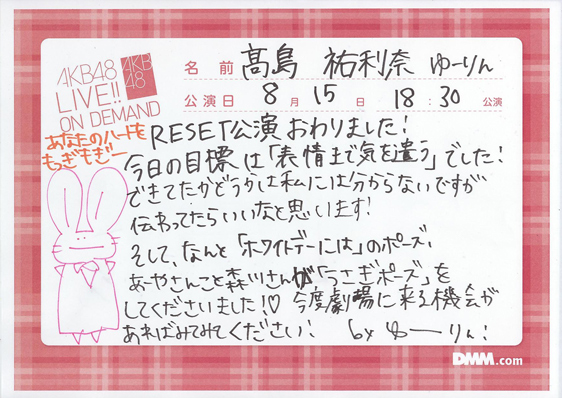 AKB48
LIVE!!
ON DEMAND
AKB
48
名前 髙島 祐利奈 ゆーりん
公演日 8月15日 18:30 公演
あなたのハートを
もぎもぎー
RESET公演おわりました!
今日の目標は「表情まで気を遣う」でした!
できてたかどうかは私には分からないですが
伝わってたらいいなと思います!
そして、なんと「ホワイトデーには」のポーズ、
あーやさんこと森川さんが「うさぎポーズ」を
してくださいました!♡ 今度劇場に来る機会が
あればみてみてください! by ゆーりん!
DMM.com